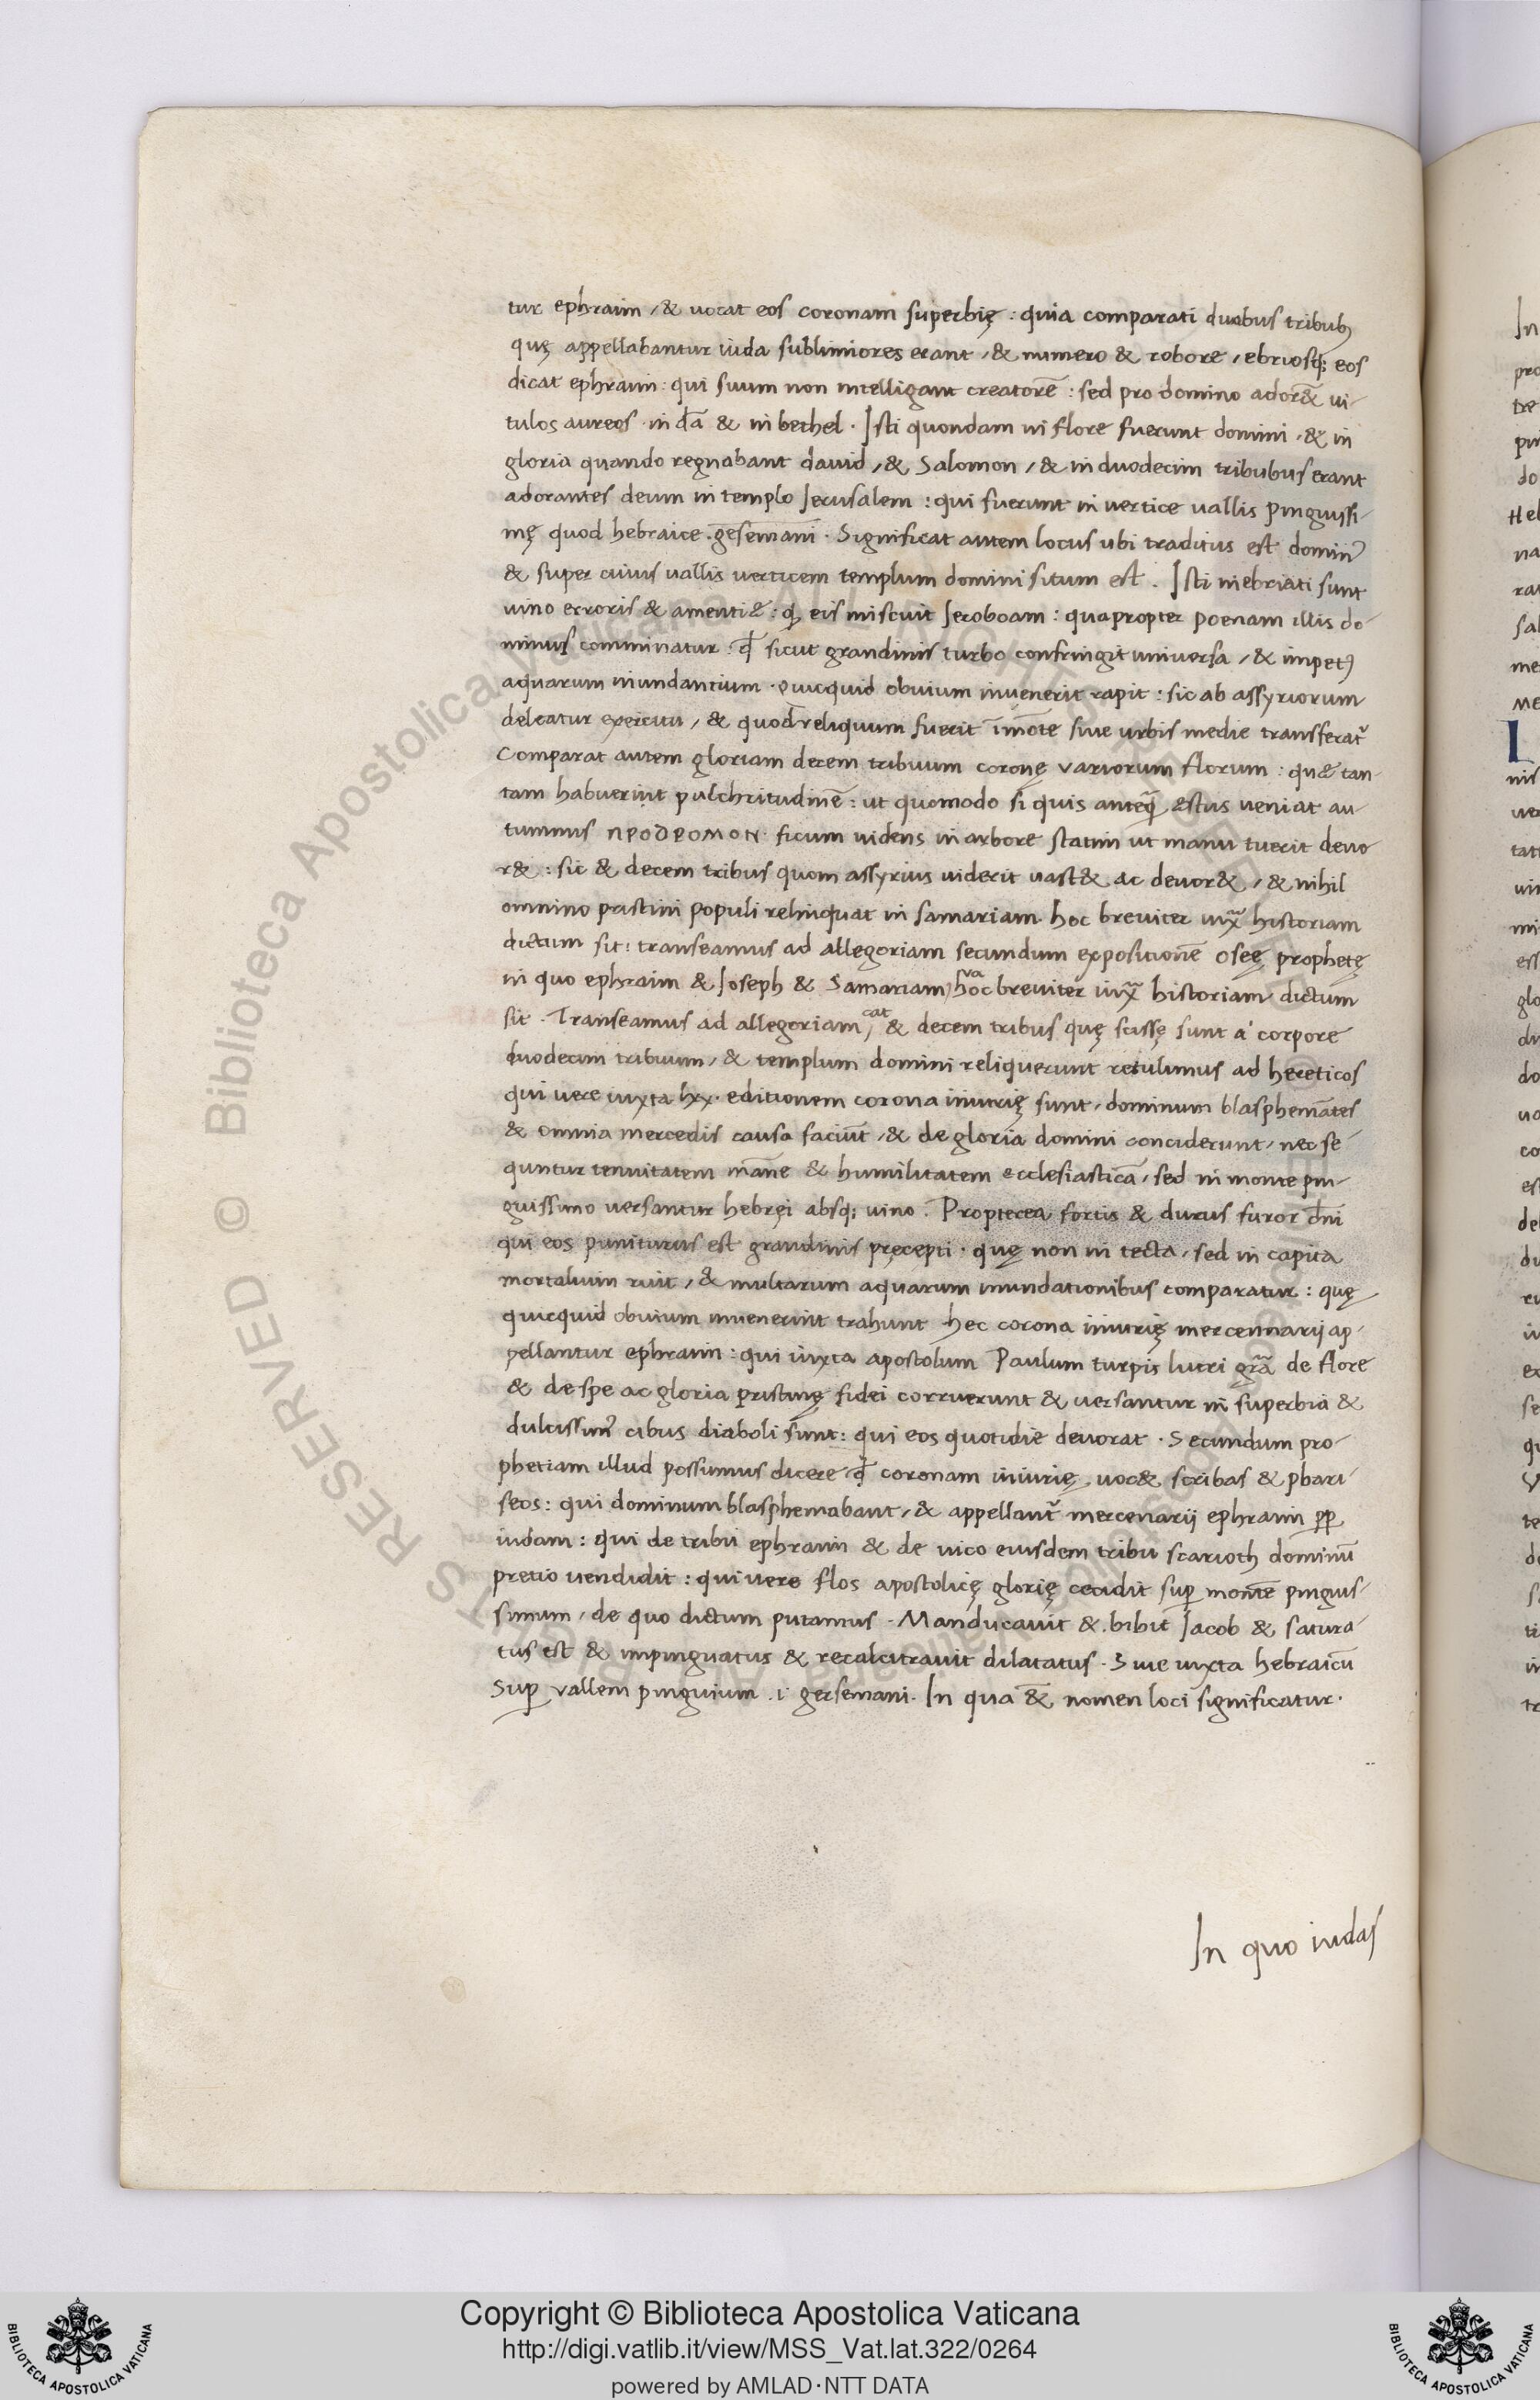 tur ephraim, & uocat eos coronam superbię : quia comparati duobus tribub;
quę appellabantur iuda sublimiores erant, & numero & robore, ebriosq; eos
dicat ephraim : qui suum non intelligant creatorē : sed pro domino ador& ui-
tulos aureos in dā & in bethel . Isti quondam in flore fuerunt domini, & in
gloria quando regnabant dauid, & Salomon, & in duodecim tribubus erant
adorantes deum in templo Jerusalem : qui fuerunt in uertice uallis pinguissi-
mę quod hebraice . gesemani . Significat autem locus ubi traditus est domin9
& super cuius uallis uerticem templum domini situm est . Isti inebriati sunt
uino erroris & amentiæ : qđ eis miscuit Jeroboam : quapropter poenam illis do-
minus comminatur : qđ sicut grandinis turbo confringit uniuersa, & impet9
aquarum inundantium . quicquid obuium inuenerit rapit : sic ab assyriorum
deleatur exercitu, & quod reliquum fuerit ī mōte siue urbis medie transferat᷑
Comparat autem gloriam decem tribuum coronę variorum florum : quæ tan-
tam habuerint pulchritudinē : ut quomodo si quis anteq̄ æstus ueniat au-
tumnus ΠΡΟΔΡΟΜΟΝ ficum uidens in arbore statim ut manu tuerit deuo
r& : sic & decem tribus quom assyrius uiderit uast& ac deuor&, & nihil
omnino pristini populi relinquat in samariam . hoc breuiter iuxͣ historiam
dictum sit : transeamus ad allegoriam secundum expositionē oseę prophetę
in quo ephraim & Joseph & Samariam va hoc breuiter iuxͣ historiam dictum
sit . Transeamus ad allegoriam, cat & decem tribus quę scissę sunt a' corpore
duodecim tribuum, & templum domini reliquerunt retulimus ad hereticos
qui uere iuxta lxx . editionem corona iniurię sunt, dominum blasphemātes
& omnia mercedis causa faciūt, & de gloria domini conciderunt, nec se-
quntur tenuitatem māne & humilitatem ecclesiasticā, sed in monte pin-
guissimo uersantur hebrei absq; uino . Propterea fortis & durus furor dn̄i
qui eos puniturus est grandinis pręcepti . quę non in tecta, sed in capita
mortalium ruit, & multarum aquarum inundationibus comparatur : quę
quicquid obuium inuenerint trahunt hec corona iniurię mercennarij ap-
pellantur ephraim : qui iuxta apostolum Paulum turpis lucri grā de flore
& de spe ac gloria pristinę fidei corruerunt & uersantur in superbia &
dulcissim9 cibus diaboli sunt : qui eos quotidie deuorat . Secundum pro-
phetiam illud possumus dicere qđ coronam iniurię . uoc& scribas & phari-
seos : qui dominum blasphemabant, & appellant᷑ mercenarij ephraim ꝓp
iudam : qui de tribu ephraim & de uico eiusdem tribu scarioth dominū
pretio uendidit : qui uere flos apostolicę glorię cecidit sup montē pinguis-
simum, de quo dictum putamus . Manducauit & . bibit Jacob & satura-
tus est & impinguatus & recalcitrauit dilatatus . Siue iuxta hebraicū
Sup vallem pinguium . i gersemani . In qua & nomen loci significatur .
In quo iudas
In
pro
Hel
Copyright © Biblioteca Apostolica Vaticana
http://digi.vatlib.it/view/MSS_Vat.lat.322/0264
powered by AMLAD·NTT DATA